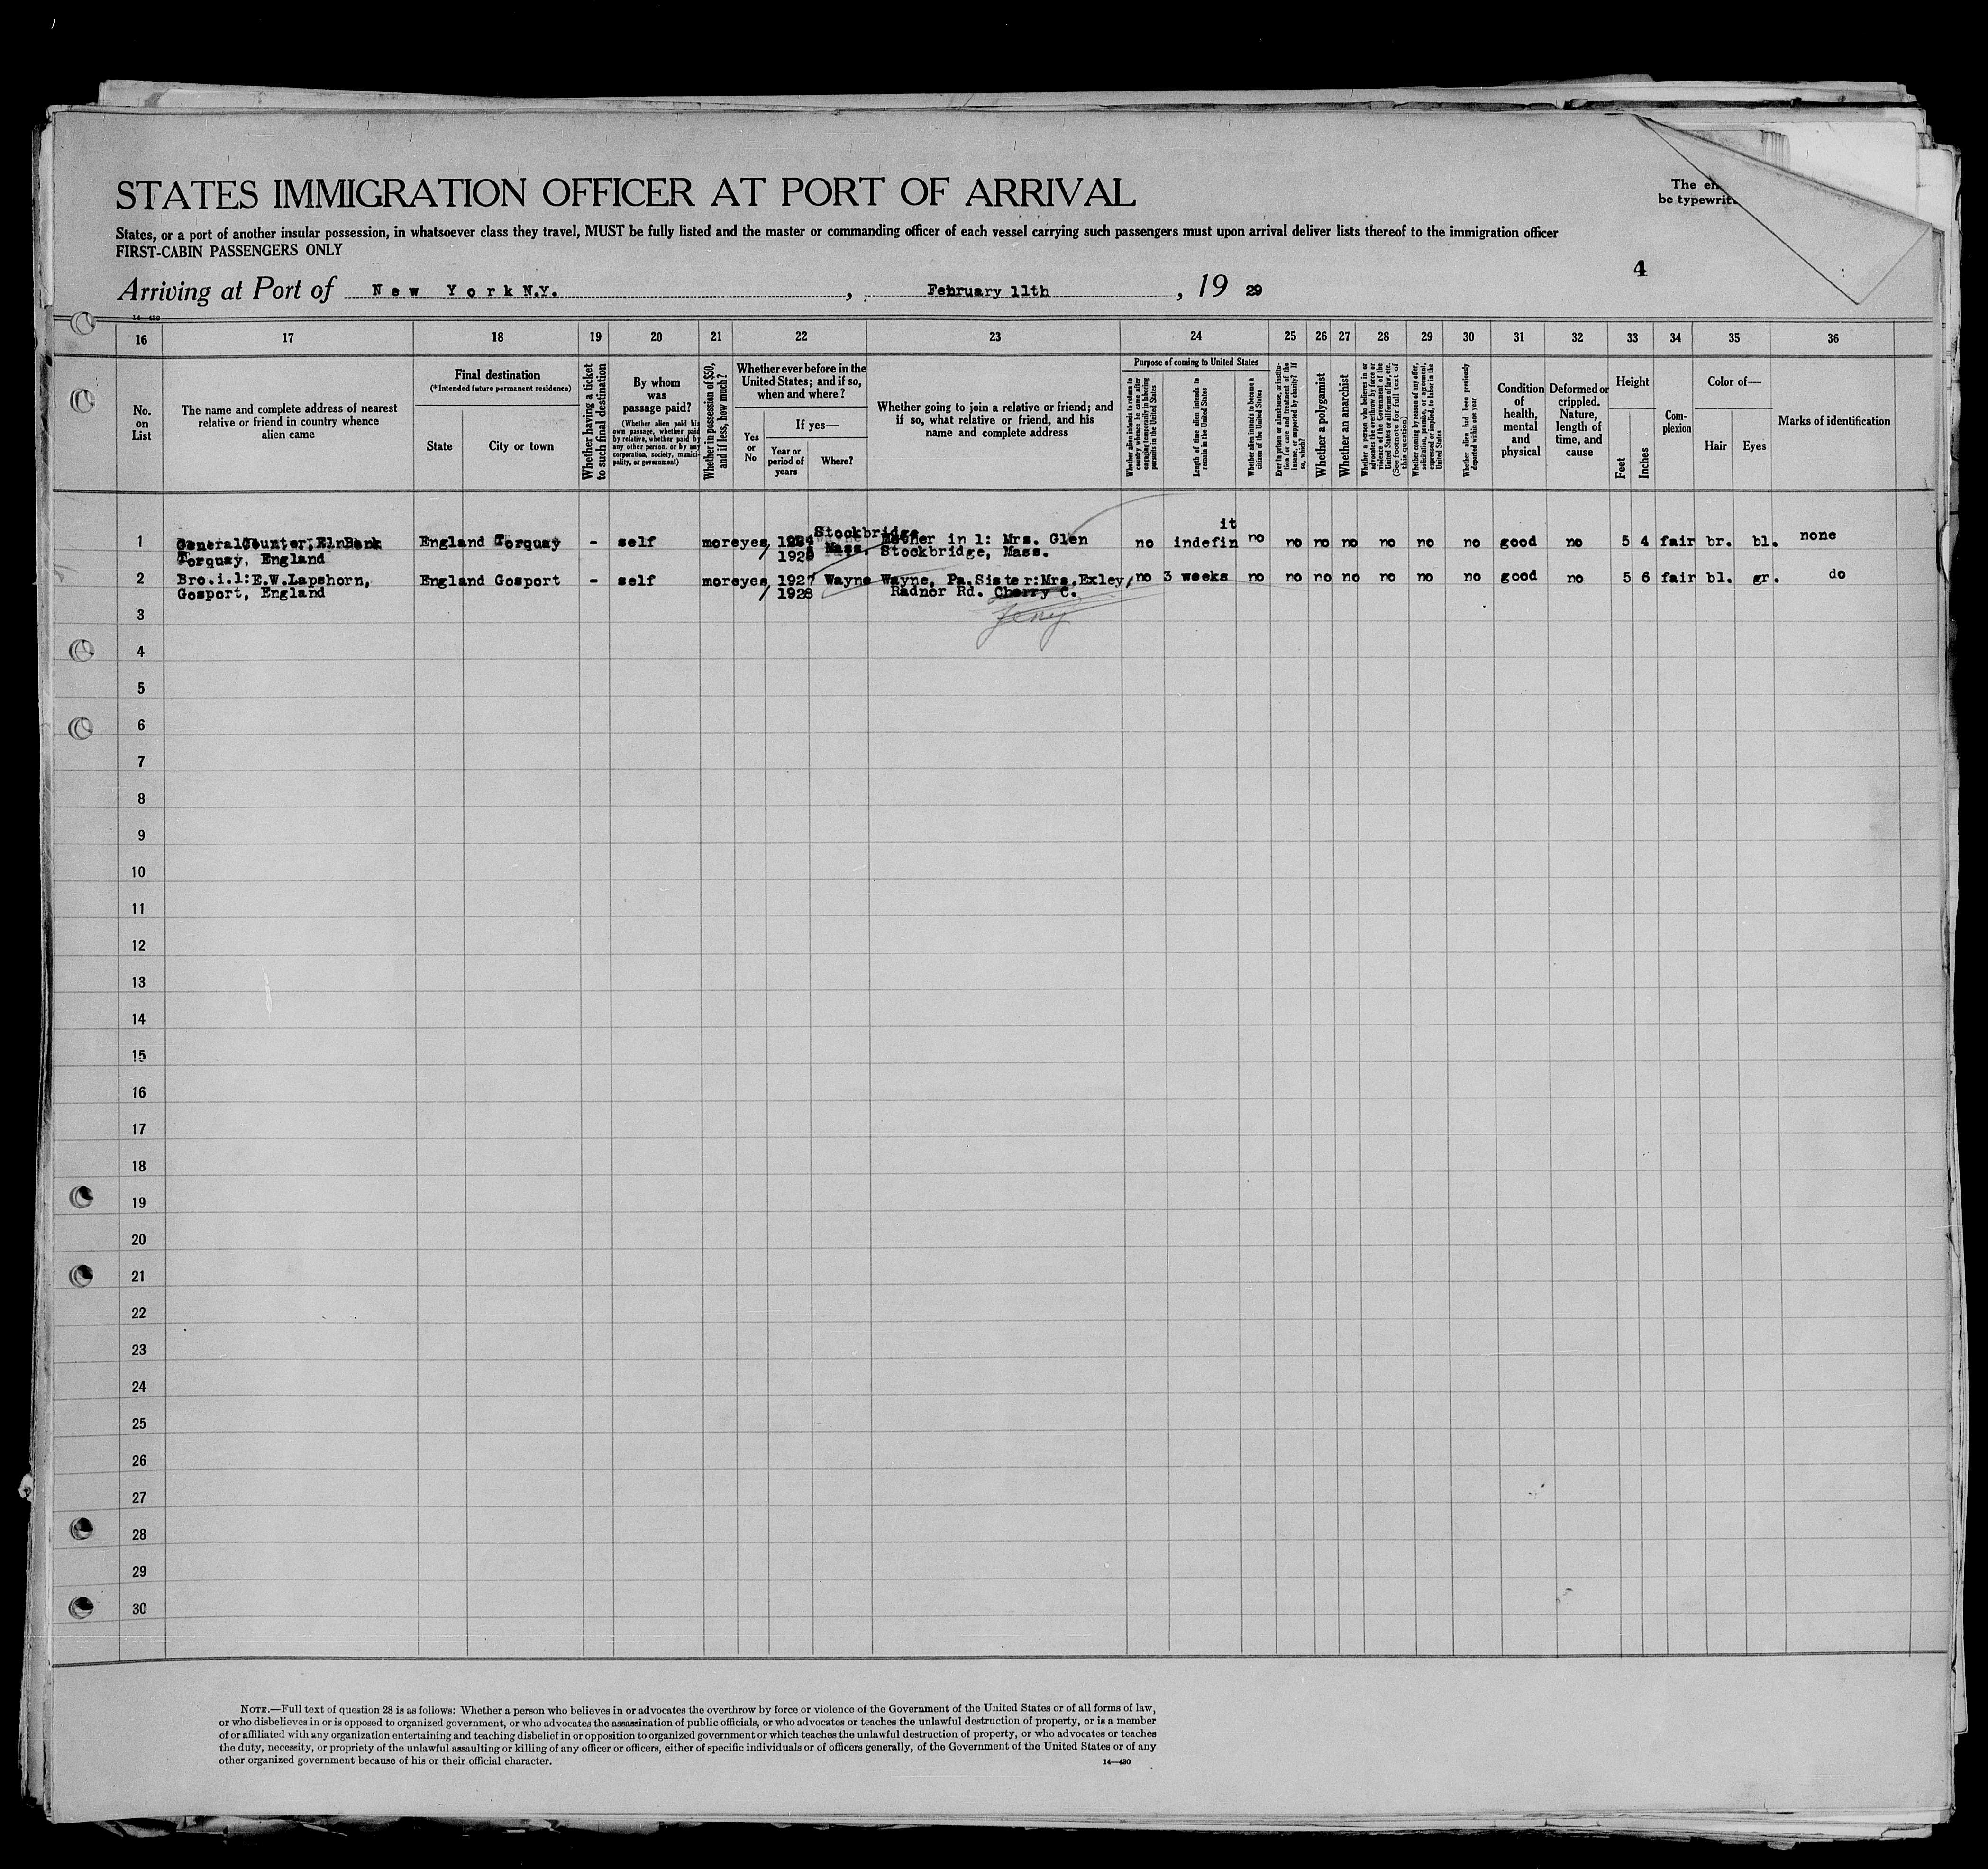 STATES IMMIGRATION OFFICER AT PORT OF ARRIVAL
The en
be typewritt
States, or a port of another insular possession, in whatsoever class they travel, MUST be fully listed and the master or commanding officer of each vessel carrying such passengers must upon arrival deliver lists thereof to the immigration officer
FIRST-CABIN PASSENGERS ONLY
4
Arriving at Port of New York N.Y., February 11th, 19 29
14—430
16 17 18 19 20 21 22 23 24 25 26 27 28 29 30 31 32 33 34 35 36
No. on List
The name and complete address of nearest relative or friend in country whence alien came
Final destination
(*Intended future permanent residence)
State
City or town
Whether having a ticket to such final destination
By whom was passage paid?
(Whether alien paid his own passage, whether paid by relative, whether paid by any other person, or by any corporation, society, municipality, or government)
Whether in possession of $50, and if less, how much?
Whether ever before in the United States; and if so, when and where?
Yes or No
If yes—
Year or period of years
Where?
Whether going to join a relative or friend; and if so, what relative or friend, and his name and complete address
Purpose of coming to United States
Whether alien intends to return to country whence he came after engaging temporarily in laboring pursuits in the United States
Length of time alien intends to remain in the United States
Whether alien intends to become a citizen of the United States
Ever in prison or almshouse, or institution for care and treatment of the insane, or supported by charity? If so, which?
Whether a polygamist
Whether an anarchist
Whether a person who believes in or advocates the overthrow by force or violence of the Government of the United States or all forms of law, etc. (See footnote for full text of this question)
Whether coming by reason of any offer, solicitation, promise, or agreement, expressed or implied, to labor in the United States
Whether alien had been previously deported within one year
Condition of health, mental and physical
Deformed or crippled. Nature, length of time, and cause
Height
Feet
Inches
Complexion
Color of—
Hair
Eyes
Marks of identification
1 General Counter, Elm Bank England Torquay - self more yes 1924 Stockbridge Mother in l: Mrs. Glen no indefin it no no no no no no no good no 5 4 fair br. bl. none
Torquay, England 1928 Mass. Stockbridge, Mass.
2 Bro.i.l:E.W.Lapshorn, England Gosport - self more yes 1927 Wayne Wayne, Pa.Sister:Mrs.Exley, no 3 weeks no no no no no no no good no 5 6 fair bl. gr. do
Gosport, England 1928 Radnor Rd. Cherry C.
3
4
5
6
7
8
9
10
11
12
13
14
15
16
17
18
19
20
21
22
23
24
25
26
27
28
29
30
NOTE.—Full text of question 28 is as follows: Whether a person who believes in or advocates the overthrow by force or violence of the Government of the United States or of all forms of law,
or who disbelieves in or is opposed to organized government, or who advocates the assassination of public officials, or who advocates or teaches the unlawful destruction of property, or is a member
of or affiliated with any organization entertaining and teaching disbelief in or opposition to organized government or which teaches the unlawful destruction of property, or who advocates or teaches
the duty, necessity, or propriety of the unlawful assaulting or killing of any officer or officers, either of specific individuals or of officers generally, of the Government of the United States or of any
other organized government because of his or their official character.
14—430